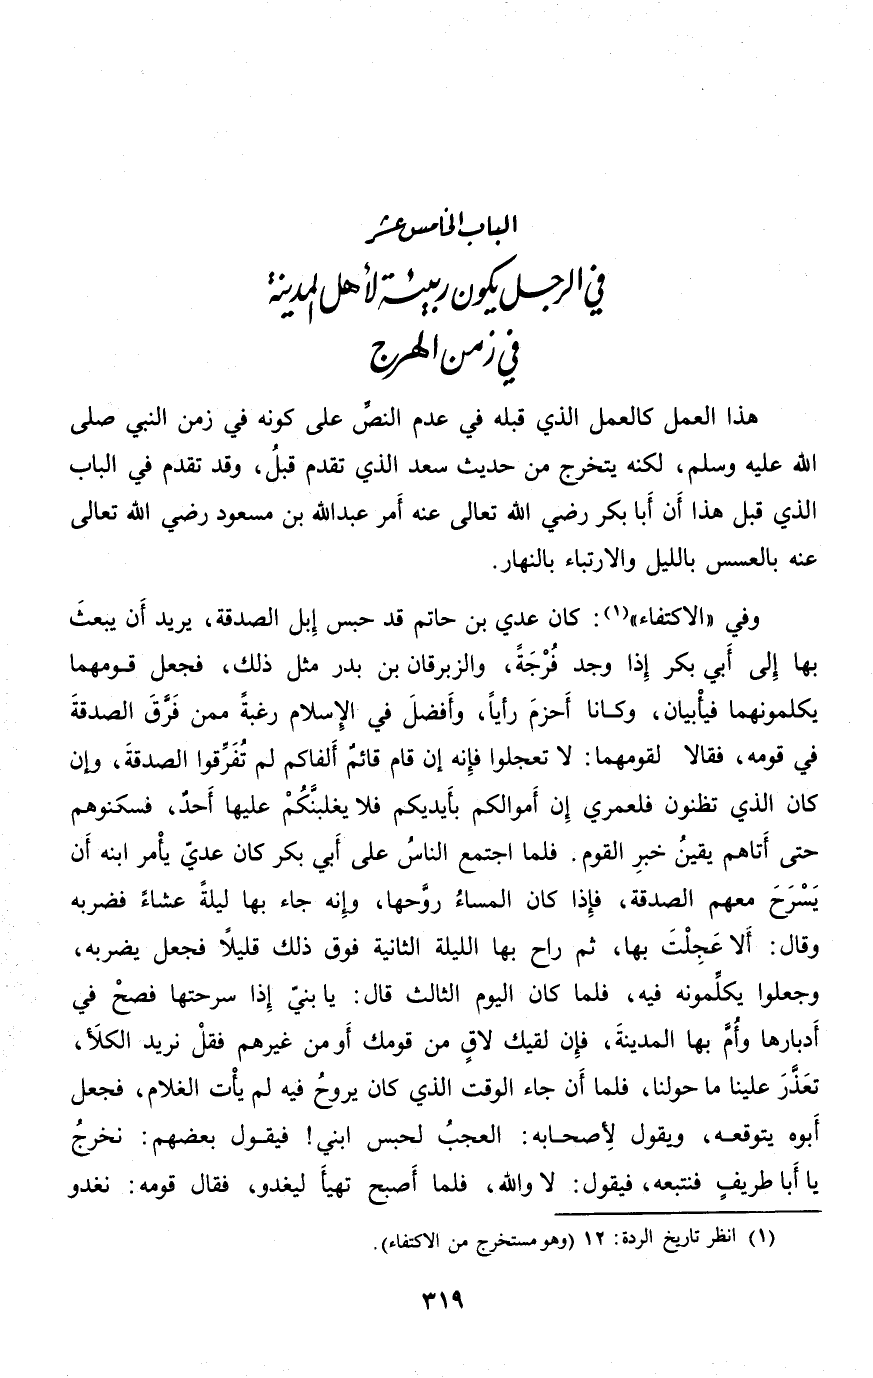 الباب الخامس عشر
في الرجل يكون ربيئة لأهل المدينة
في زمن الهرج
هذا العمل كالعمل الذي قبله في عدم النصِّ على كونه في زمن النبي صلى
الله عليه وسلم، لكنه يتخرج من حديث سعد الذي تقدم قبلُ، وقد تقدم في الباب
الذي قبل هذا أن أَبا بكر رضي الله تعالى عنه أَمر عبدالله بن مسعود رضي الله تعالى
عنه بالعسس بالليل والارتباء بالنهار.
وفي «الاكتفاء»(١): كان عدي بن حاتم قد حبس إبل الصدقة، يريد أَن يبعثَ
بها إلى أَبي بكر إذا وجد فُرْجَةً، والزبرقان بن بدر مثل ذلك، فجعل قومهما
يكلمونهما فيأْبيان، وكانا أَحزمَ رأياً، وأَفضلَ في الإسلام رغبةً ممن فَرَّقَ الصدقةَ
في قومه، فقالا لقومهما: لا تعجلوا فإنه إن قام قائمٌ أَلفاكم لم تُفَرِّقوا الصدقةَ، وإن
كان الذي تظنون فلعمري إن أَموالكم بأَيديكم فلا يغلبنَّكُمْ عليها أَحدٌ، فسكنوهم
حتى أَتاهم يقينُ خبرِ القوم. فلما اجتمع الناسُ على أَبي بكر كان عديّ يأْمر ابنه أَن
يَسْرَحَ معهم الصدقة، فإذا كان المساءُ روَّحها، وإنه جاء بها ليلةً عشاءً فضربه
وقال: أَلا عَجِلْتَ بها، ثم راح بها الليلة الثانية فوق ذلك قليلًا فجعل يضربه،
وجعلوا يكلِّمونه فيه، فلما كان اليوم الثالث قال: يا بنيّ إذا سرحتها فصحْ في
أَدبارها وأُمَّ بها المدينةَ، فإن لقيك لاقٍ من قومك أَو من غيرهم فقلْ نريد الكلَأَ،
تعَذَّرَ علينا ما حولنا، فلما أَن جاء الوقت الذي كان يروحُ فيه لم يأْت الغلام، فجعل
أَبوه يتوقعه، ويقول لِأَصحابه: العجبُ لحبس ابني! فيقول بعضهم: نخرجُ
يا أَبا طريفٍ فنتبعه، فيقول: لا والله، فلما أَصبح تهيأَ ليغدو، فقال قومه: نغدو
(١) انظر تاريخ الردة: ١٢ (وهو مستخرج من الاكتفاء).
٣١٩